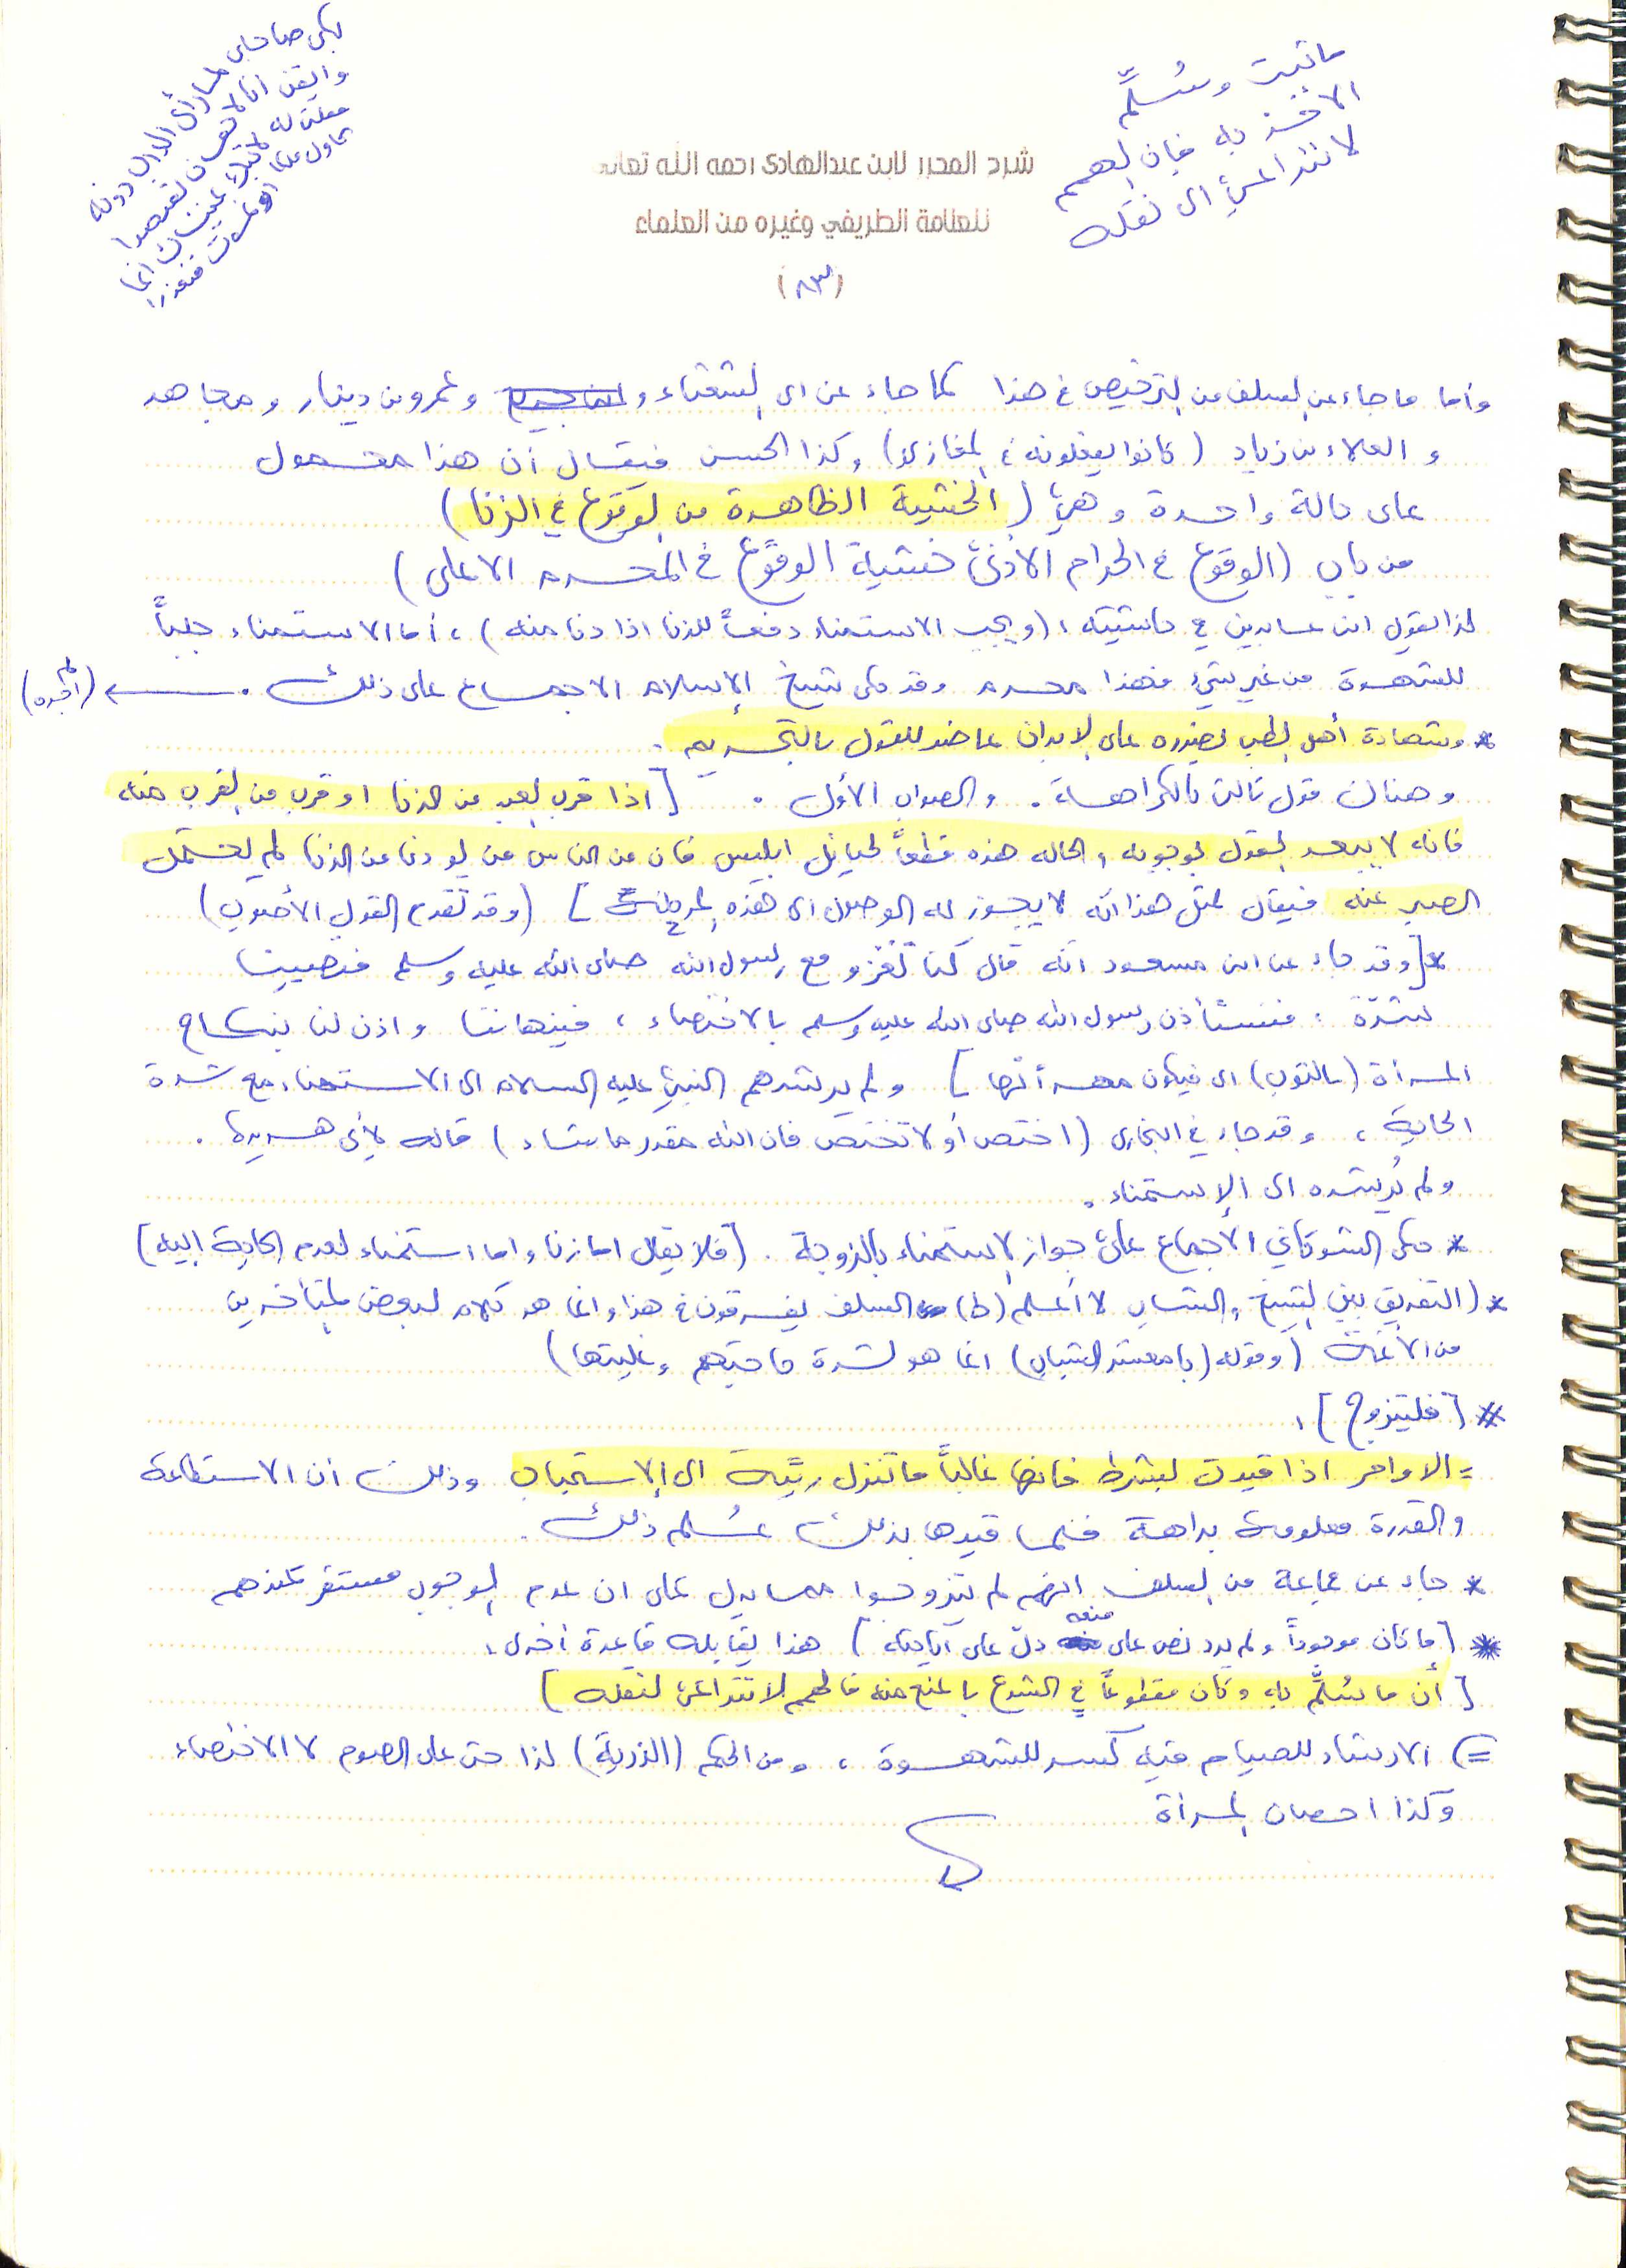 ما ثبت وسُلِّم
الأخذ به فإن الهمم
لا تتداعى الى نقله
بكى صاحبي لما رأى الدرب دونه
وأيقن انا لاحقان بقيصرا
فقلت له لا تبك عينك انما
نحاول ملكا او نموت فنعذرا
شرح المحرر لابن عبدالهادي رحمه الله تعالى
للعلامة الطريفي وغيره من العلماء
(٨٣)
وأما ما جاء عن السلف من الترخيص في هذا كما جاء عن ابي الشعثاء و وعمرو بن دينار ومجاهد
والعلاء بن زياد (كانوا يفعلونه في المغازي) وكذا الحسن فيقال أن هذا محمول
على حالة واحدة وهي (الخشية الظاهرة من الوقوع في الزنا)
من باب (الوقوع في الحرام الأدنى خشية الوقوع في المحرم الاعلى)
لذا يقول ابن عابدين في حاشيته: (ويجب الاستمناء دفعاً للزنا اذا دنا منه)، أما الاستمناء جلباً
للشهوة من غير شيء فهذا محرم وقد حكى شيخ الإسلام الاجماع على ذلك. ← (لم أجده)
* وشهادة أهل الطب بضرره على الابدان عاضد للقول بالتحريم.
وهناك قول ثالث بالكراهة. والصواب الأول. [اذا قرب العبد من الزنا او قرب من القرب منه
فانه لا يبعد القول بوجوبه والحاله هذه قطعاً لحبائل ابليس فان من الناس من لو دنا من الزنا لم يحتمل
الصبر عنه فيقال لمثل هذا انه لا يجوز له الوصول الى هذه المرحلة] (وقد تقدم القول الأصوب)
*[وقد جاء عن ابن مسعود انه قال كنا نغزو مع رسول الله صلى الله عليه وسلم فتصيبنا
شدّة: فنستأذن رسول الله صلى الله عليه وسلم بالاختصاء، فينهانا واذن لنا بنكاح
المرأة (بالثوب) اي فيكون مهرأتها] ولم يرشدهم النبي عليه السلام الى الاستمناء مع شدة
الحاجة، وقد جاء في البخاري (اختص أو لا تختص فان الله مقدر ما يشاء) قاله لأبي هريرة.
ولم يُرشده الى الإستمناء.
* حكى الشوكاني الاجماع على جواز الاستمناء بالزوجة. [فلا يقال اما زنا واما استمناء لعدم الحاجة إليه]
* (التفريق بين الشيخ والشاب لا أعلم (ط) السلف يفرقون في هذا وانما هو كلام لبعض المتأخرين
من الأئمة (وقوله (يا معشر الشباب) انما هو لشدة حاجتهم وغلبتها)
* [فليتزوج]:
= الاوامر اذا قيدت بشرط فانها غالباً ما تنزل رتبة الى الإستحباب وذلك أن الاستطاعة
والقدرة معلومة بداهة فلما قيدها بذلك عُلم ذلك.
* جاء عن جماعة من السلف انهم لم يتزوجوا مما يدل على ان عدم الوجوب مستقر عندهم
* [ما كان موجوداً ولم يرد نص على منعه دلّ على اباحته] هذا يقابله قاعدة أخرى:
[أن ما سُلّم به وكان مقطوعاً في الشرع بالمنع منه فالهمم لا تتداعى لنقله]
=) الارشاد للصيام فيه كسر للشهوة، ومن الحكم (الذرية) لذا حث على الصوم لا الاختصاء
وكذا احصان المرأة